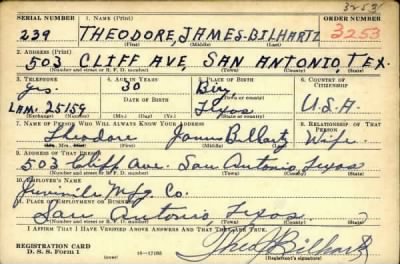 3253
SERIAL NUMBER 1. NAME (Print) ORDER NUMBER
239 THEODORE, JAMES-BILHARTZ 3253
(First) (Middle) (Last)
2. ADDRESS (Print)
503 CLIFF AVE, SAN ANTONIO, TEX.
(Number and street or R. F. D. number) (Town) (County) (State)
3. TELEPHONE 4. AGE IN YEARS 5. PLACE OF BIRTH 6. COUNTRY OF CITIZENSHIP
Yes. 30
DATE OF BIRTH (Town or county)
LAM. 25159 Texas U.S.A.
(Exchange) (Number) (Mo.) (Day) (Yr.) (State or country)
7. NAME OF PERSON WHO WILL ALWAYS KNOW YOUR ADDRESS 8. RELATIONSHIP OF THAT PERSON
Theodore James Bilhartz Wife.
(Mr., Mrs., Miss) (First) (Middle) (Last)
9. ADDRESS OF THAT PERSON
503 Cliff Ave. San Antonio Texas
(Number and street or R. F. D. number) (Town) (County) (State)
10. EMPLOYER'S NAME
Juvenile Mfg. Co.
11. PLACE OF EMPLOYMENT OR BUSINESS
San Antonio Texas.
(Number and street or R. F. D. number) (Town) (County) (State)
I AFFIRM THAT I HAVE VERIFIED ABOVE ANSWERS AND THAT THEY ARE TRUE.
REGISTRATION CARD
D. S. S. Form 1 (over) 16-17105 Theo J Bilhartz
(Registrant's signature)